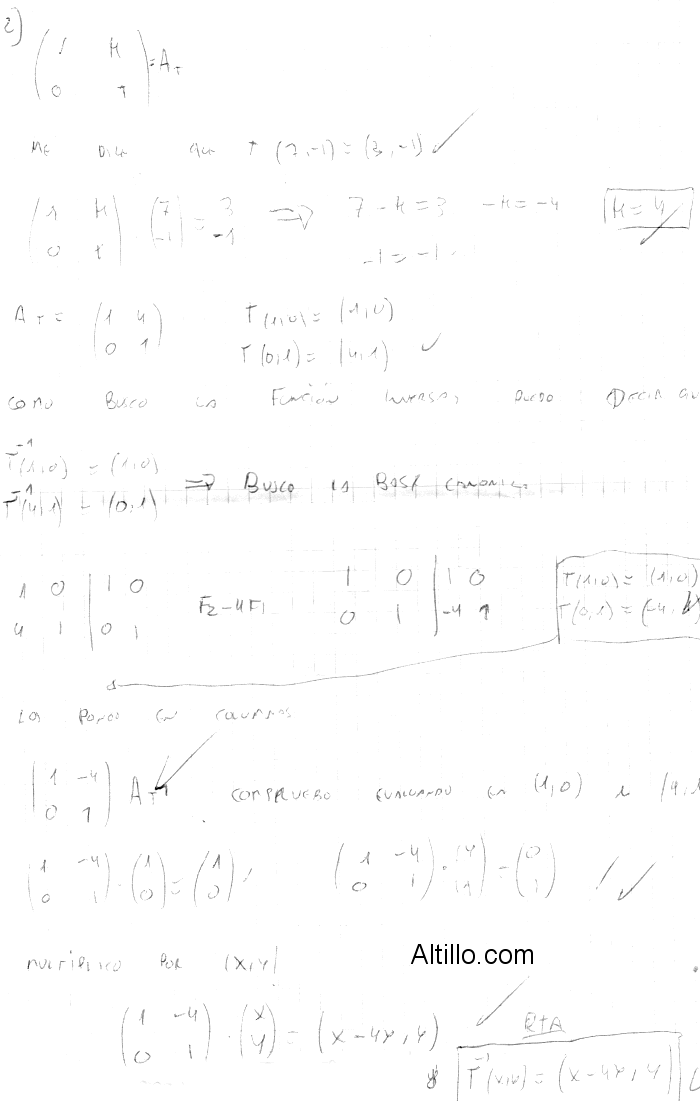 2)
( 1 K
0 1 ) = A_T
ME DICE QUE T (7,-1) = (3,-1)
( 1 K
0 1 ) · ( 7
-1 ) = 3
-1 ⇒ 7-K=3 -K=-4 K=4
-1=-1
A_T = ( 1 4
0 1 ) T(1,0) = (1,0)
T(0,1) = (4,1)
COMO BUSCO LA FUNCIÓN INVERSA, PUEDO DECIR QU
T⁻¹(1,0) = (1,0)
T⁻¹(4,1) = (0,1) ⇒ BUSCO LA BASE CANONICA
1 0 | 1 0
4 1 | 0 1 F2-4F1 1 0 | 1 0
0 1 | -4 1 T(1,0) = (1,0)
T(0,1) = (-4,
LOS PONGO EN COLUMNAS
( 1 -4
0 1 ) A_T⁻¹ COMPRUEBO EVALUANDO EN (1,0) (4,1
( 1 -4
0 1 ) · ( 1
0 ) = ( 1
0 ) ( 1 -4
0 1 ) · ( 4
1 ) = ( 0
1 )
MULTIPLICO POR (X,Y)
Altillo.com
( 1 -4
0 1 ) · ( X
Y ) = (X-4Y, Y)
RTA
T⁻¹(X,Y) = (X-4Y, Y)